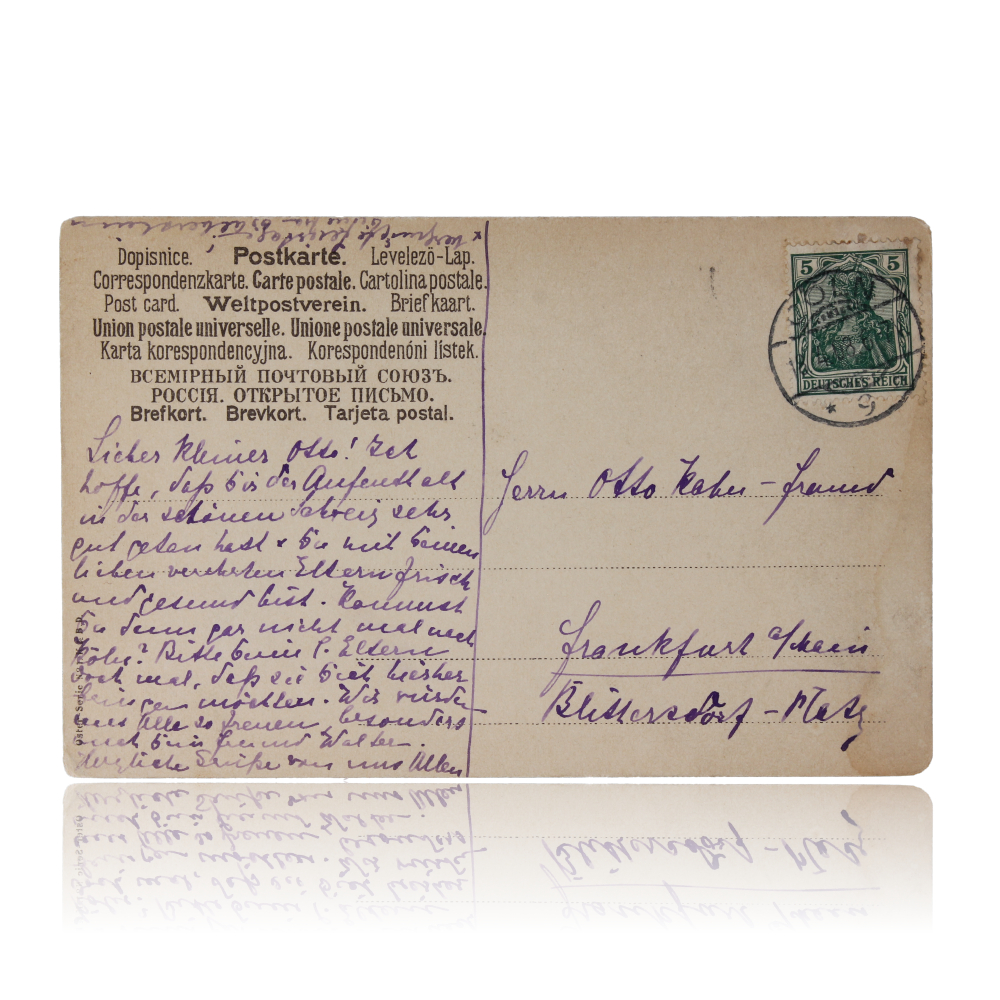 Dopisnice. Postkarte. Levelező-Lap.
Correspondenzkarte. Carte postale. Cartolina postale.
Post card. Weltpostverein. Briefkaart.
Union postale universelle. Unione postale universale.
Karta korespondencyjna. Korespondenóni lístek.
ВСЕМІРНЫЙ ПОЧТОВЫЙ СОЮЗЪ.
РОССІЯ. ОТКРЫТОЕ ПИСЬМО.
Brefkort. Brevkort. Tarjeta postal.
Lieber kleiner Otto! Ich
hoffe, daß Dir der Aufenthalt
in der schönen Schweiz sehr
gut getan hast & Du mit Deinen
lieben verehrten Eltern frisch
und gesund bist. Kommst
Du denn gar nicht mal nach
Köln? Bitte Deine l. Eltern
doch mal, daß sie Dich hierher
bringen möchten. Wir würden
uns Alle so freuen, besonders
auch Dein Freund Walter.
Herzliche Grüße von uns Allen
5 5
DEUTSCHES REICH
* 9
Herrn Otto Kahn-Freund
Frankfurt a/Main
Blittersdorf-Platz